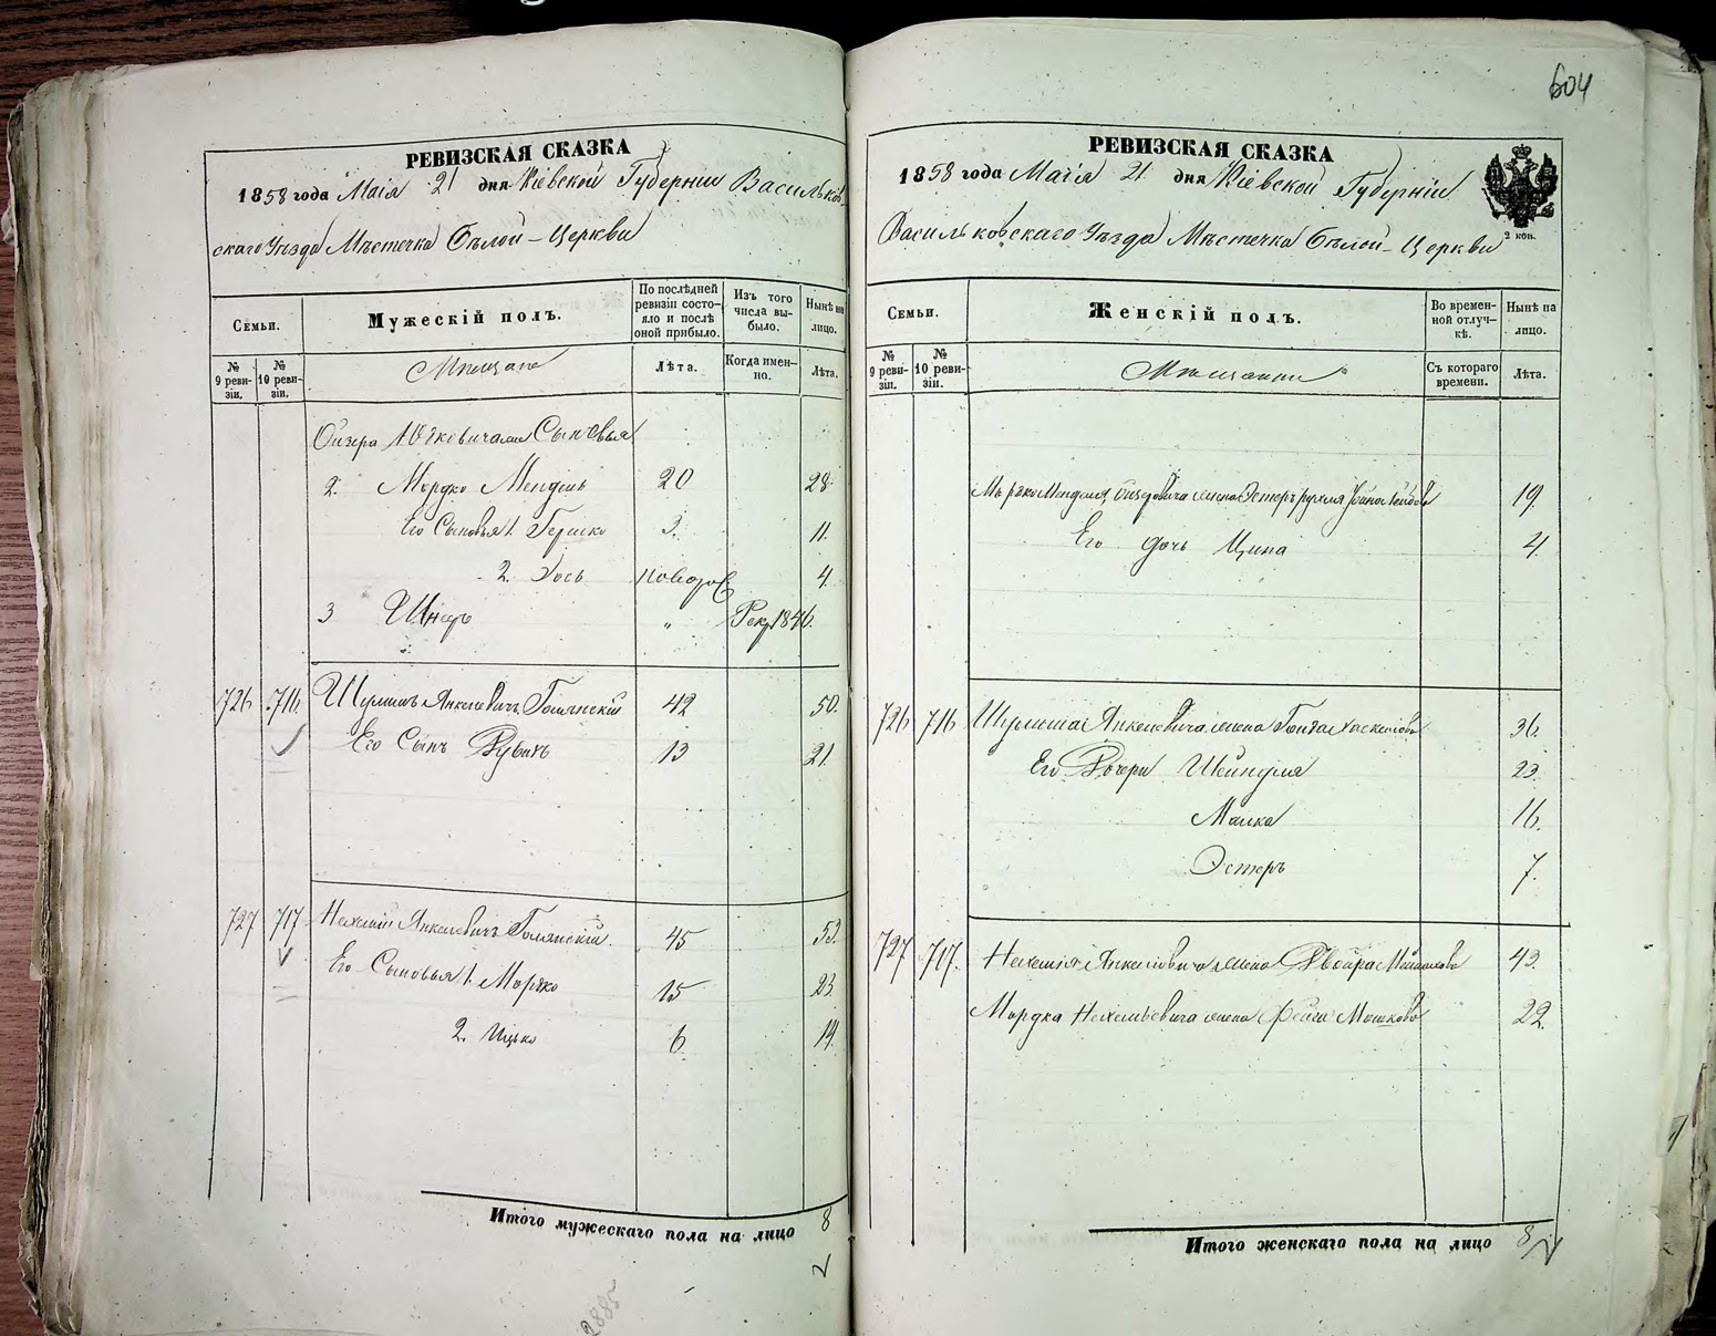 604
РЕВИЗСКАЯ СКАЗКА
1858 года Маія 21 дня Кіевской Губерніи Васильков-
скаго Уѣзда Мѣстечка Бѣлой-Церкви
Семьи.
Мужескій полъ.
По послѣдней ревизіи состо-
яло и послѣ оной прибыло.
Изъ того числа вы-
было.
Нынѣ на лицо.
№ 9 реви-
зіи.
№ 10 реви-
зіи.
Мѣщане
Лѣта.
Когда имен-
но.
Лѣта.
Сыновья
2. Мордко Мендель 20 28
Его Сыновья 1. Гершко 3. 11.
2. Іось новорож 4.
3 " Рекр 1846.
726 716 Янкелевичъ 42 50.
Его Сынъ Рувинъ 13 21
727 717 Нехемій Янкелевичъ 45 53.
Его Сыновья 1. Мордко 15 23
2. Ицько 6 14
Итого мужескаго пола на лицо 8
2885
РЕВИЗСКАЯ СКАЗКА
1858 года Маія 21 дня Кіевской Губерніи
Васильковскаго Уѣзда Мѣстечка Бѣлой-Церкви
2 коп.
Семьи.
Женскій полъ.
Во времен-
ной отлуч-
кѣ.
Нынѣ на лицо.
№ 9 реви-
зіи.
№ 10 реви-
зіи.
Мѣщанки
Съ котораго времени.
Лѣта.
Менделя жена Эстеръ 19.
Его дочь Ципа 4.
726 716 Янкелевича жена 36.
Его Дочери Шейндля 23
Малка 16.
Эстеръ 7.
727 717. Нехемія Янкелевича жена Двойра 43.
Мордка Нехемьевича жена Фейга Мошкова 22.
Итого женскаго пола на лицо 8